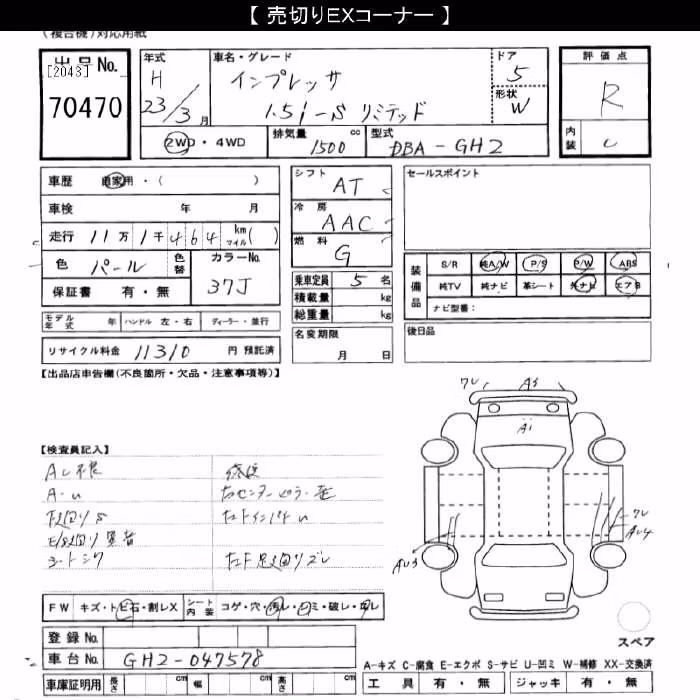 【 売切りEXコーナー 】
(複合機)対応用紙
出品No.
[2043]
70470
年式 H 23/3月
車名・グレード インプレッサ
1.5i-S リミテッド
ドア 5
形状 W
2WD・4WD
排気量 1500 cc
型式 DBA-GH2
評価点 R
内装 C
車歴 自家用・( )
車検 年 月
走行 11万1千464 km マイル( )
色 パール 色替
カラーNo. 37J
保証書 有・無
シフト AT
冷房 AAC
燃料 G
乗車定員 5名
積載量 kg
総重量 kg
セールスポイント
装備品
S/R 純A/W P/S P/W ABS
純TV 純ナビ 革シート 社ナビ エアB
ナビ型番:
モデル年式 年 ハンドル 左・右 ディーラー・並行
名変期限
月 日
後日品
リサイクル料金 11310 円 預託済
【出品店申告欄(不良箇所・欠品・注意事項等)】
ワレ A3
A1
【検査員記入】
修復
A・U
右センターピラー・
下廻りS
シートシワ
ワレ
AU4
AU3
FW キズ・トビ石・割レX シート内装 コゲ・穴・汚レ・シミ・破レ・切レ
登録No.
車台No. GH2-047578
車庫証明用 長さ cm 幅 cm 高さ cm
スペア
A-キズ C-腐食 E-エクボ S-サビ U-凹ミ W-補修 XX-交換済
工具 有・無 ジャッキ 有・無